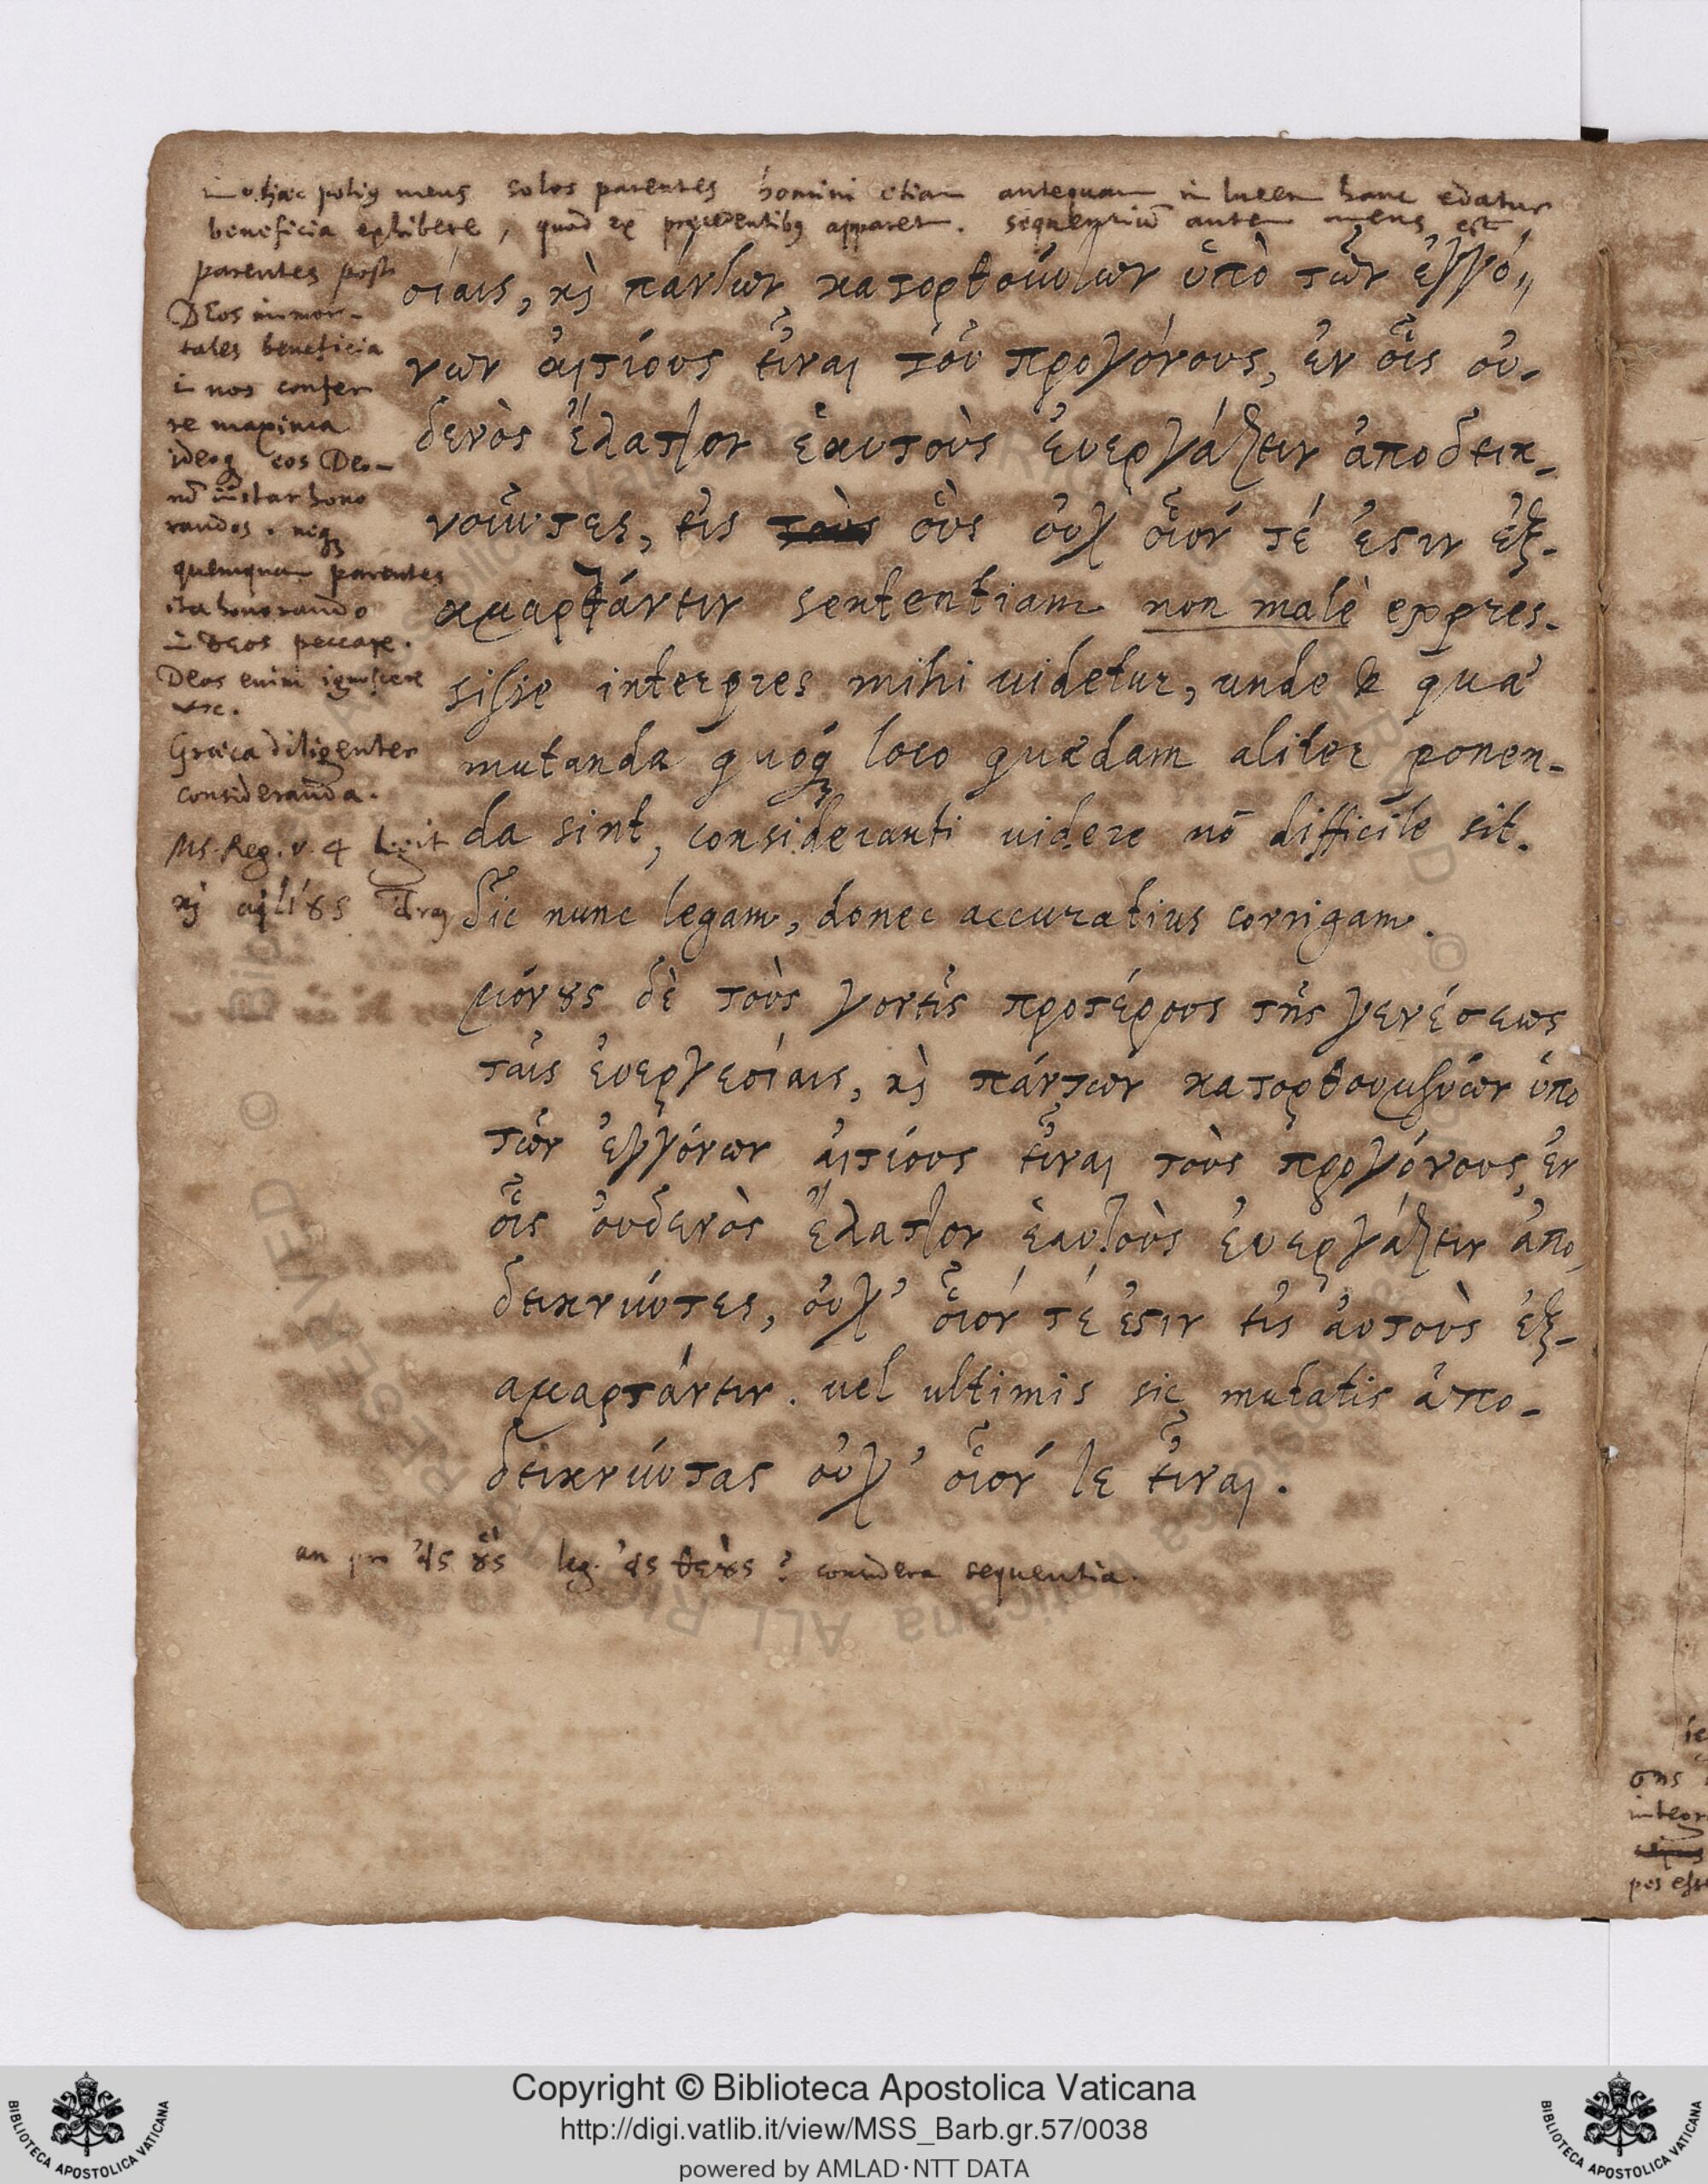 imo hæc potius mens solos parentes homini etiam antequam in lucem hanc edatur
beneficia exhibere, quod ex præcedentibus apparet. sequentiū autem mens est
parentes post
Deos immor-
tales beneficia
in nos confer
re maxima
ideoq eos Deo-
rū instar hono
randos. neq
quemquam parentes
ita honorando
in Deos peccare.
Deos enim ignoscere
etc.
Græca diligenter
consideranda.
Ms. Reg. v. 4 legit
κὶ αἰτίους
σίαις, κὶ πάντων κατορθούντων ὑπὸ τῶν ἐγγό-
νων αἰτίους εἶναι τοὺ προγόνους, ἐν οἷς οὐ-
δενὸς ἔλαττον ἑαυτοὺς ἐυεργάζειν ἀποδεικ-
νοῦντες, εἰς τοὺς οὓς οὐχ οἷόν τέ ἐστιν ἐξ-
αμαρτάνειν sententiam non malè expres-
sisse interpres mihi uidetur, unde & quæ
mutanda quoq loco quædam aliter ponen-
da sint, consideranti uidere nō difficile sit.
Sic nunc legam, donec accuratius corrigam.
μόνους δὲ τοὺς γονεῖς προτέρους τῆς γενέσεως
ταῖς ἐυεργεσίαις, κὶ πάντων κατορθουμένων ὑπο
τῶν ἐγγόνων αἰτίους εἶναι τοὺς προγόνους, ἐν
οἷς ὀυδενὸς ἔλαττον ἑαυτοὺς ἐυεργάζειν ἀπο
δεικνύντες, οὐχ' οἷόν τέ ἐστιν εἰς ἀυτοὺς ἐξ-
αμαρτάνειν. uel ultimis sic mutatis ἀπο-
δεικνύντας οὐχ' οἷόν τε εἶναι.
an pro εἰς οὓς leg. εἰς θεοὺς? considera sequentia.